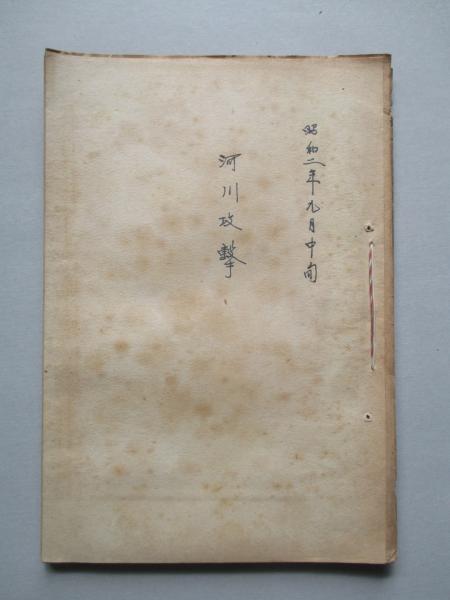 昭和二年九月中旬
河川攻撃